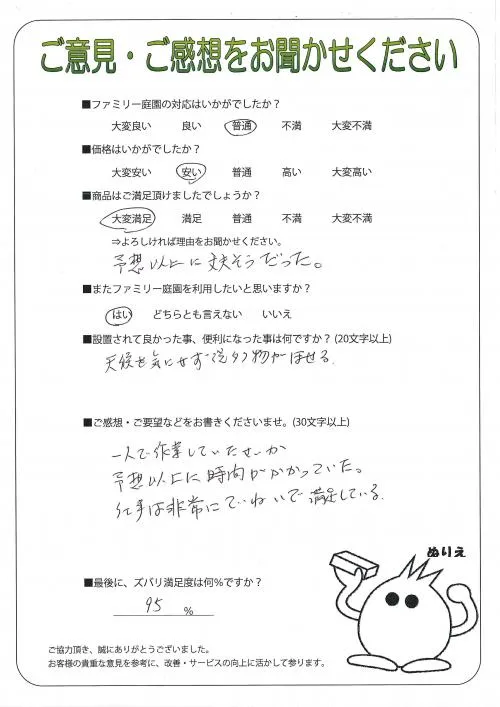 ご意見・ご感想をお聞かせください
■ファミリー庭園の対応はいかがでしたか？
大変良い 良い 普通 不満 大変不満
■価格はいかがでしたか？
大変安い 安い 普通 高い 大変高い
■商品はご満足頂けましたでしょうか？
大変満足 満足 普通 不満 大変不満
⇒よろしければ理由をお聞かせください。
予想以上に丈夫そうだった。
■またファミリー庭園を利用したいと思いますか？
はい どちらとも言えない いいえ
■設置されて良かった事、便利になった事は何ですか？(20文字以上)
天候を気にせず洗タク物がほせる.
■ご感想・ご要望などをお書きくださいませ。(30文字以上)
一人で作業していたせいか
予想以上に時間がかかっていた。
仕事は非常にていねいで満足している.
ぬりえ
■最後に、ズバリ満足度は何%ですか？
95 %
ご協力頂き、誠にありがとうございました。
お客様の貴重な意見を参考に、改善・サービスの向上に活かして参ります。